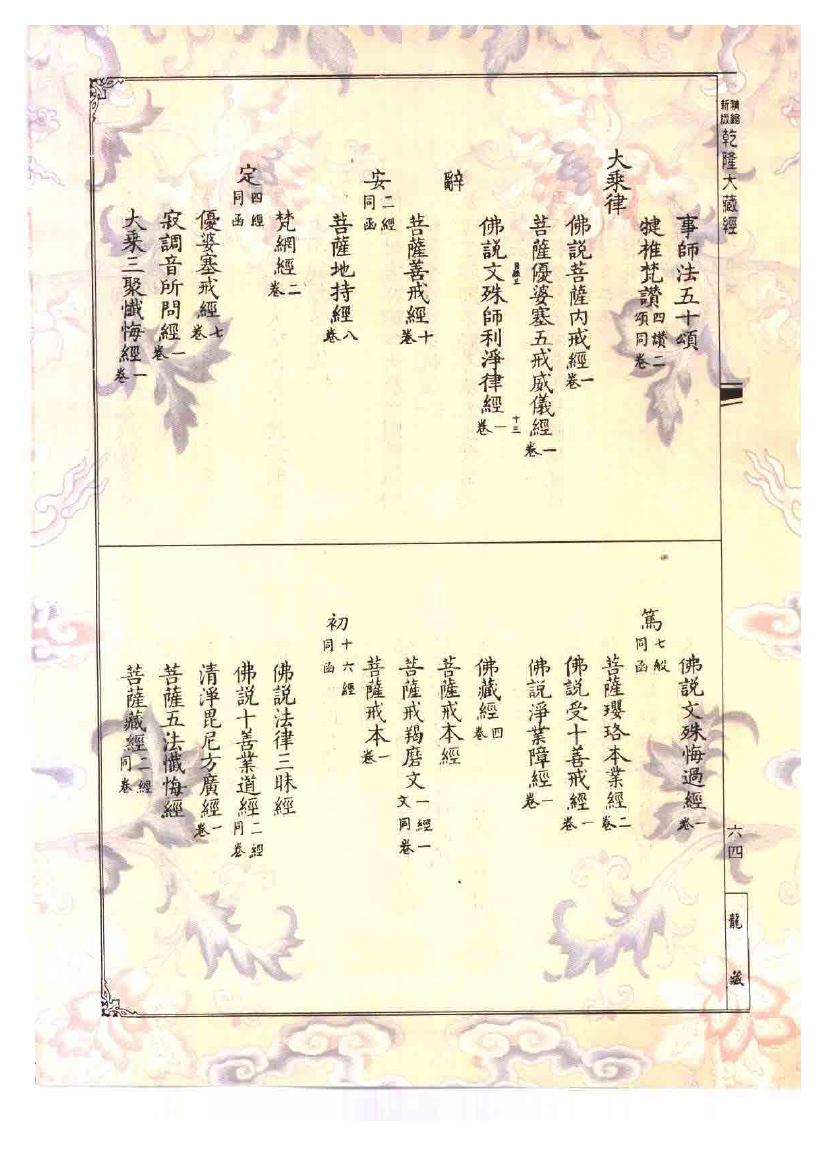 精縮新版 乾隆大藏經
事師法五十頌
犍椎梵讚四讚二頌同卷
大乘律
佛說菩薩內戒經一卷
菩薩優婆塞五戒威儀經一卷
十三
佛說文殊師利淨律經一卷
辭
菩薩善戒經十卷
安二經同函
菩薩地持經八卷
定四經同函
梵網經二卷
優婆塞戒經七卷
寂調音所問經一卷
大乘三聚懺悔經一卷
佛說文殊悔過經一卷
篤七般同函
菩薩瓔珞本業經二卷
佛說受十善戒經一卷
佛說淨業障經一卷
佛藏經四卷
菩薩戒本經
菩薩戒羯磨文一經一文同卷
菩薩戒本一卷
初十六經同函
佛說法律三昧經
佛說十善業道經二經同卷
清淨毘尼方廣經一卷
菩薩五法懺悔經
菩薩藏經二經同卷
六四
龍藏